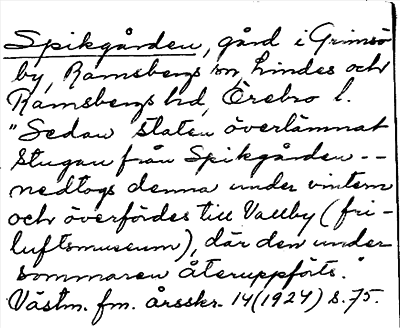 Spikgården, gård i Grimsö
by, Ramsbergs sn, Lindes och
Ramsbergs hd, Örebro l.
"Sedan staten överlämnat
stugan från Spikgården --
nedtogs denna under vintern
och överfördes till Vallby (fri-
luftsmuseum), där den under
sommaren återuppförts."
Västm. fm. årsskr. 14 (1924) s. 75.